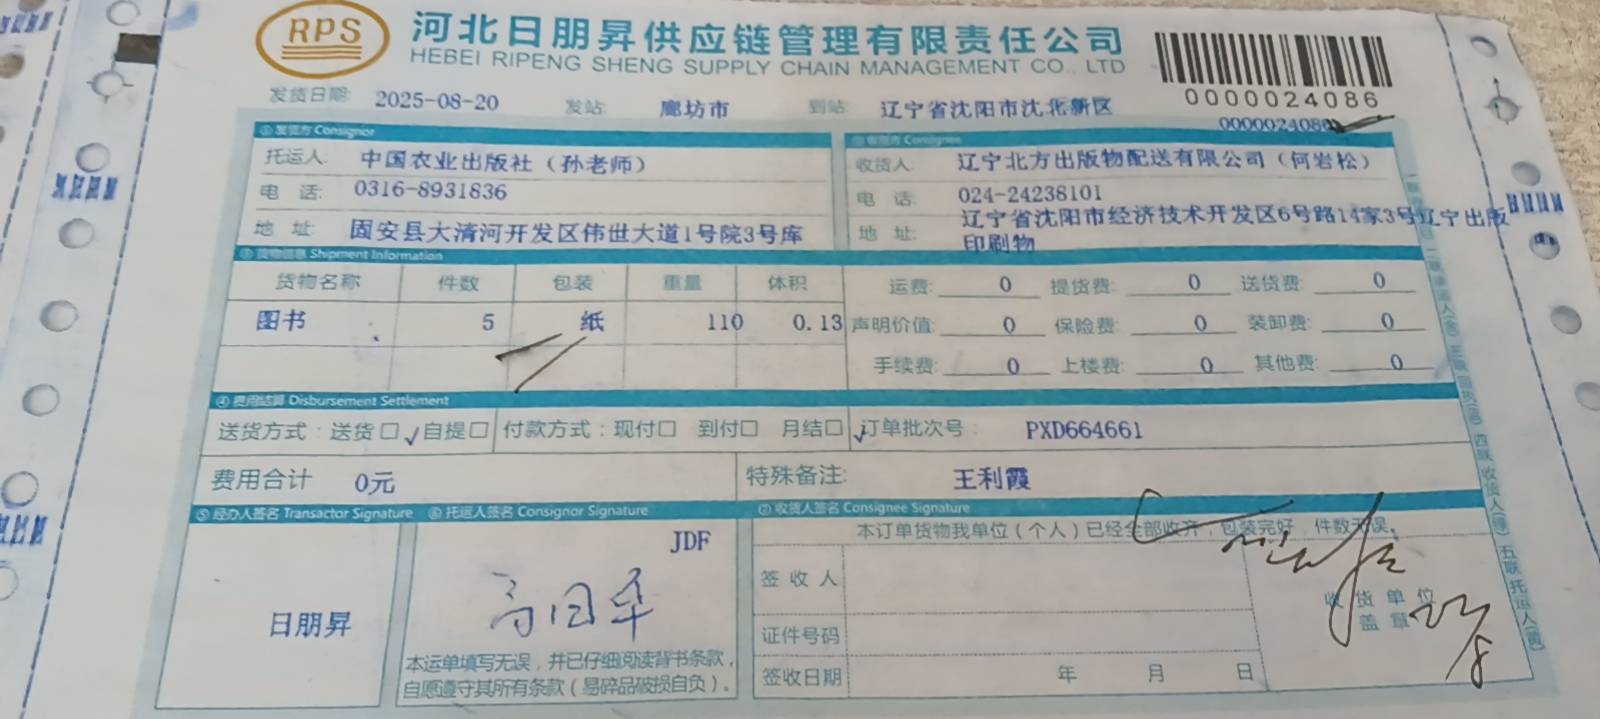 RPS
河北日朋昇供应链管理有限责任公司
HEBEI RIPENG SHENG SUPPLY CHAIN MANAGEMENT CO., LTD
0000024086
发货日期: 2025-08-20 发站: 廊坊市 到站: 辽宁省沈阳市沈北新区
000002408
①发货方 Consignor
托运人: 中国农业出版社（孙老师）
电 话: 0316-8931836
地 址: 固安县大清河开发区伟世大道1号院3号库
收货人: 辽宁北方出版物配送有限公司（何岩松）
电 话: 024-24238101
地 址: 辽宁省沈阳市经济技术开发区6号路14家3号辽宁出版
印刷物
③货物信息 Shipment Information
货物名称 件数 包装 重量 体积
图书 5 纸 110 0.13
运费: 0 提货费: 0 送货费: 0
声明价值: 0 保险费: 0 装卸费: 0
手续费: 0 上楼费: 0 其他费: 0
④费用结算 Disbursement Settlement
送货方式: 送货□ ✓自提□ 付款方式: 现付□ 到付□ 月结□ ✓订单批次号: PXD664661
费用合计 0元 特殊备注: 王利霞
⑤经办人签名 Transactor Signature
日朋昇
⑥托运人签名 Consignor Signature
JDF
本运单填写无误，并已仔细阅读背书条款，
自愿遵守其所有条款（易碎品破损自负）。
⑦收货人签名 Consignee Signature
本订单货物我单位（个人）已经全部收齐，包装完好，件数无误。
签 收 人
证件号码
签收日期 年 月 日
收 货 单 位
盖 章